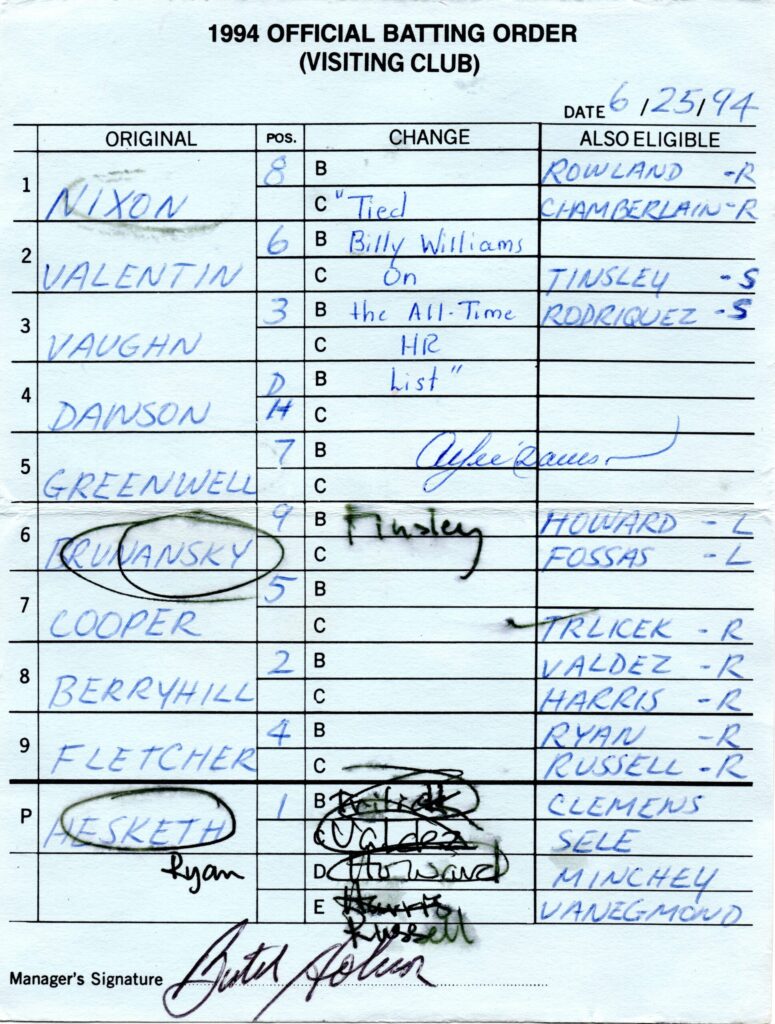 1994 OFFICIAL BATTING ORDER
(VISITING CLUB)
DATE 6/25/94
ORIGINAL POS. CHANGE ALSO ELIGIBLE
8 B ROWLAND - R
1 NIXON C "Tied CHAMBERLAIN - R
6 B Billy Williams
2 VALENTIN C On TINSLEY - S
3 B the All-Time RODRIQUEZ - S
3 VAUGHN C HR
D B List"
4 DAWSON H C
7 B
5 GREENWELL C
9 B Tinsley HOWARD - L
6 BRUNANSKY C FOSSAS - L
5 B
7 COOPER C TRLICEK - R
2 B VALDEZ - R
8 BERRYHILL C HARRIS - R
4 B RYAN - R
9 FLETCHER C RUSSELL - R
1 B Trlicek CLEMENS
P HESKETH C Valdez SELE
Ryan D Howard MINCHEY
E Harris VANEGMOND
Russell
Manager's Signature